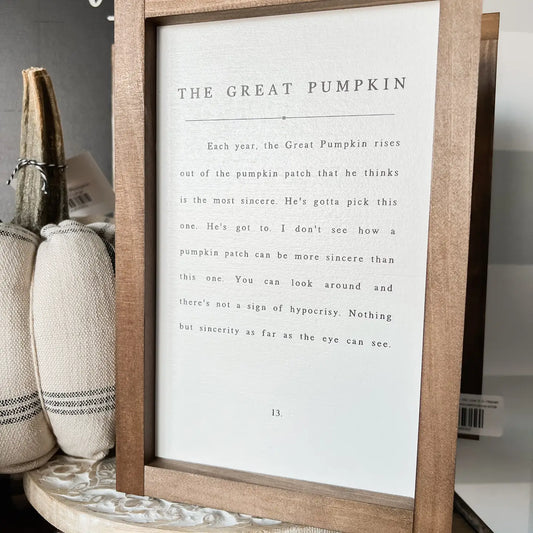 THE GREAT PUMPKIN
Each year, the Great Pumpkin rises
out of the pumpkin patch that he thinks
is the most sincere. He's gotta pick this
one. He's got to. I don't see how a
pumpkin patch can be more sincere than
this one. You can look around and
there's not a sign of hypocrisy. Nothing
but sincerity as far as the eye can see.
13.